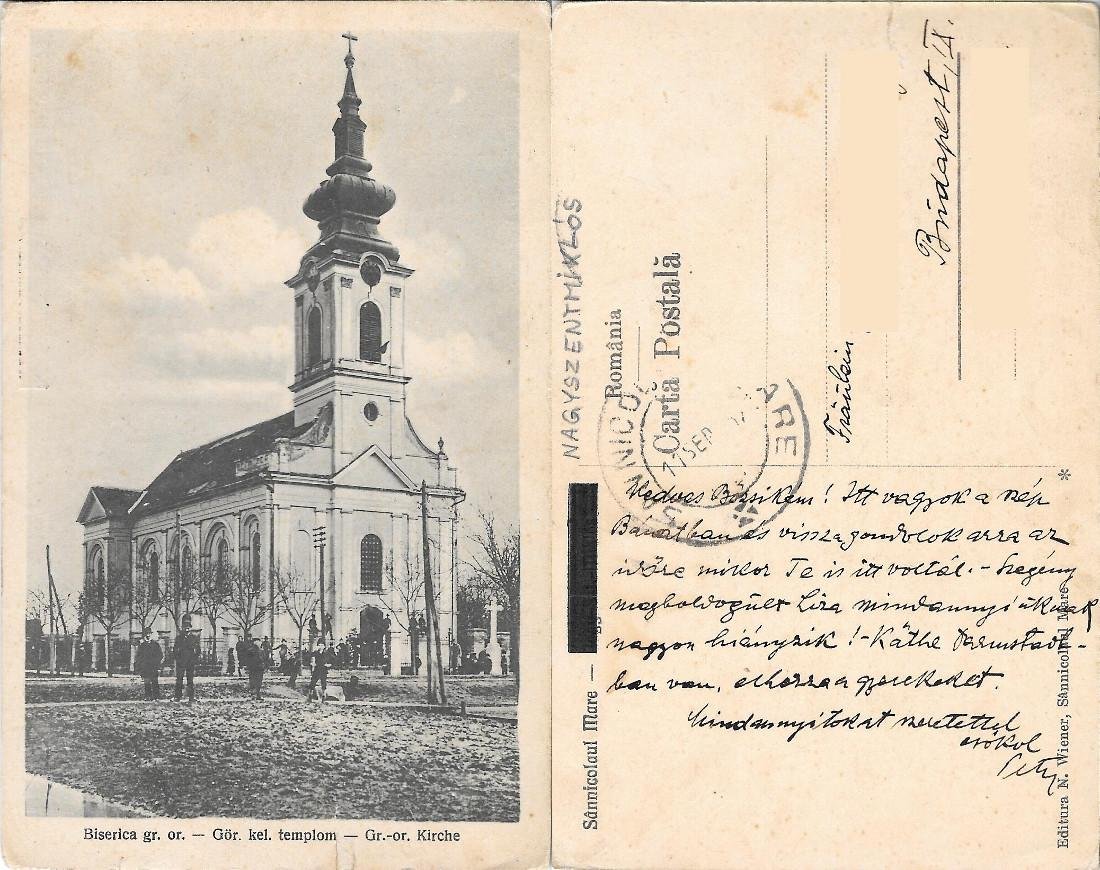 Biserica gr. or. — Gör. kel. templom — Gr.-or. Kirche
NAGYSZENTMIKLÓS
România
Cartă Poștală
SÂNNICOL MARE
SEP
Fräulein
Budapest, IX.
Kedves Bözsikém! Itt vagyok a szép
Bánátban és visszagondolok arra az
időre mikor Te is itt voltál. - Szegény
megboldogult Liza mindannyiuknak
nagyon hiányzik! - Käthe Darmstadt-
ban van, elhozza a gyerekeket.
Mindannyitokat szeretettel
csókol
Sânnicolaul Mare —
Editura N. Wiener, Sânnicolaul Mare
*